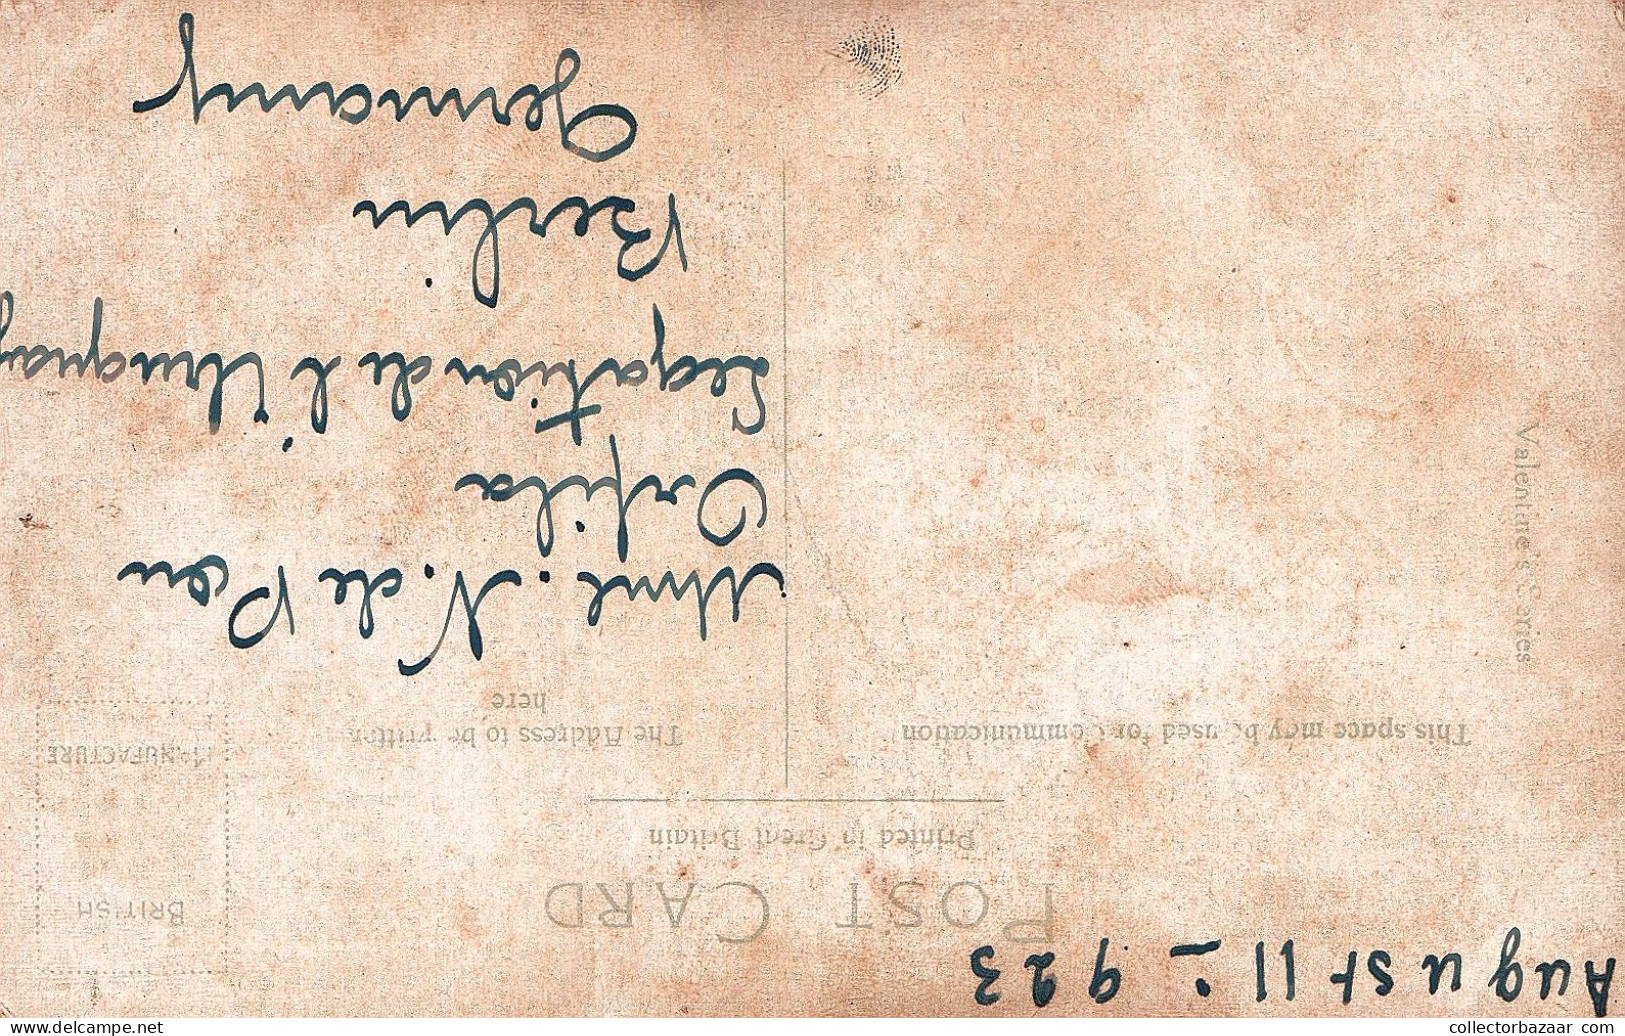 August 11 : 923
POST CARD
Printed in Great Britain
This space may be used for Communication
The Address to be written
here
BRITISH
MANUFACTURE
Mme. N. de Pon
Orfila
Legation de l'Uruguay
Berlin
Germany
Valentine's Series
collectorbazaar.com